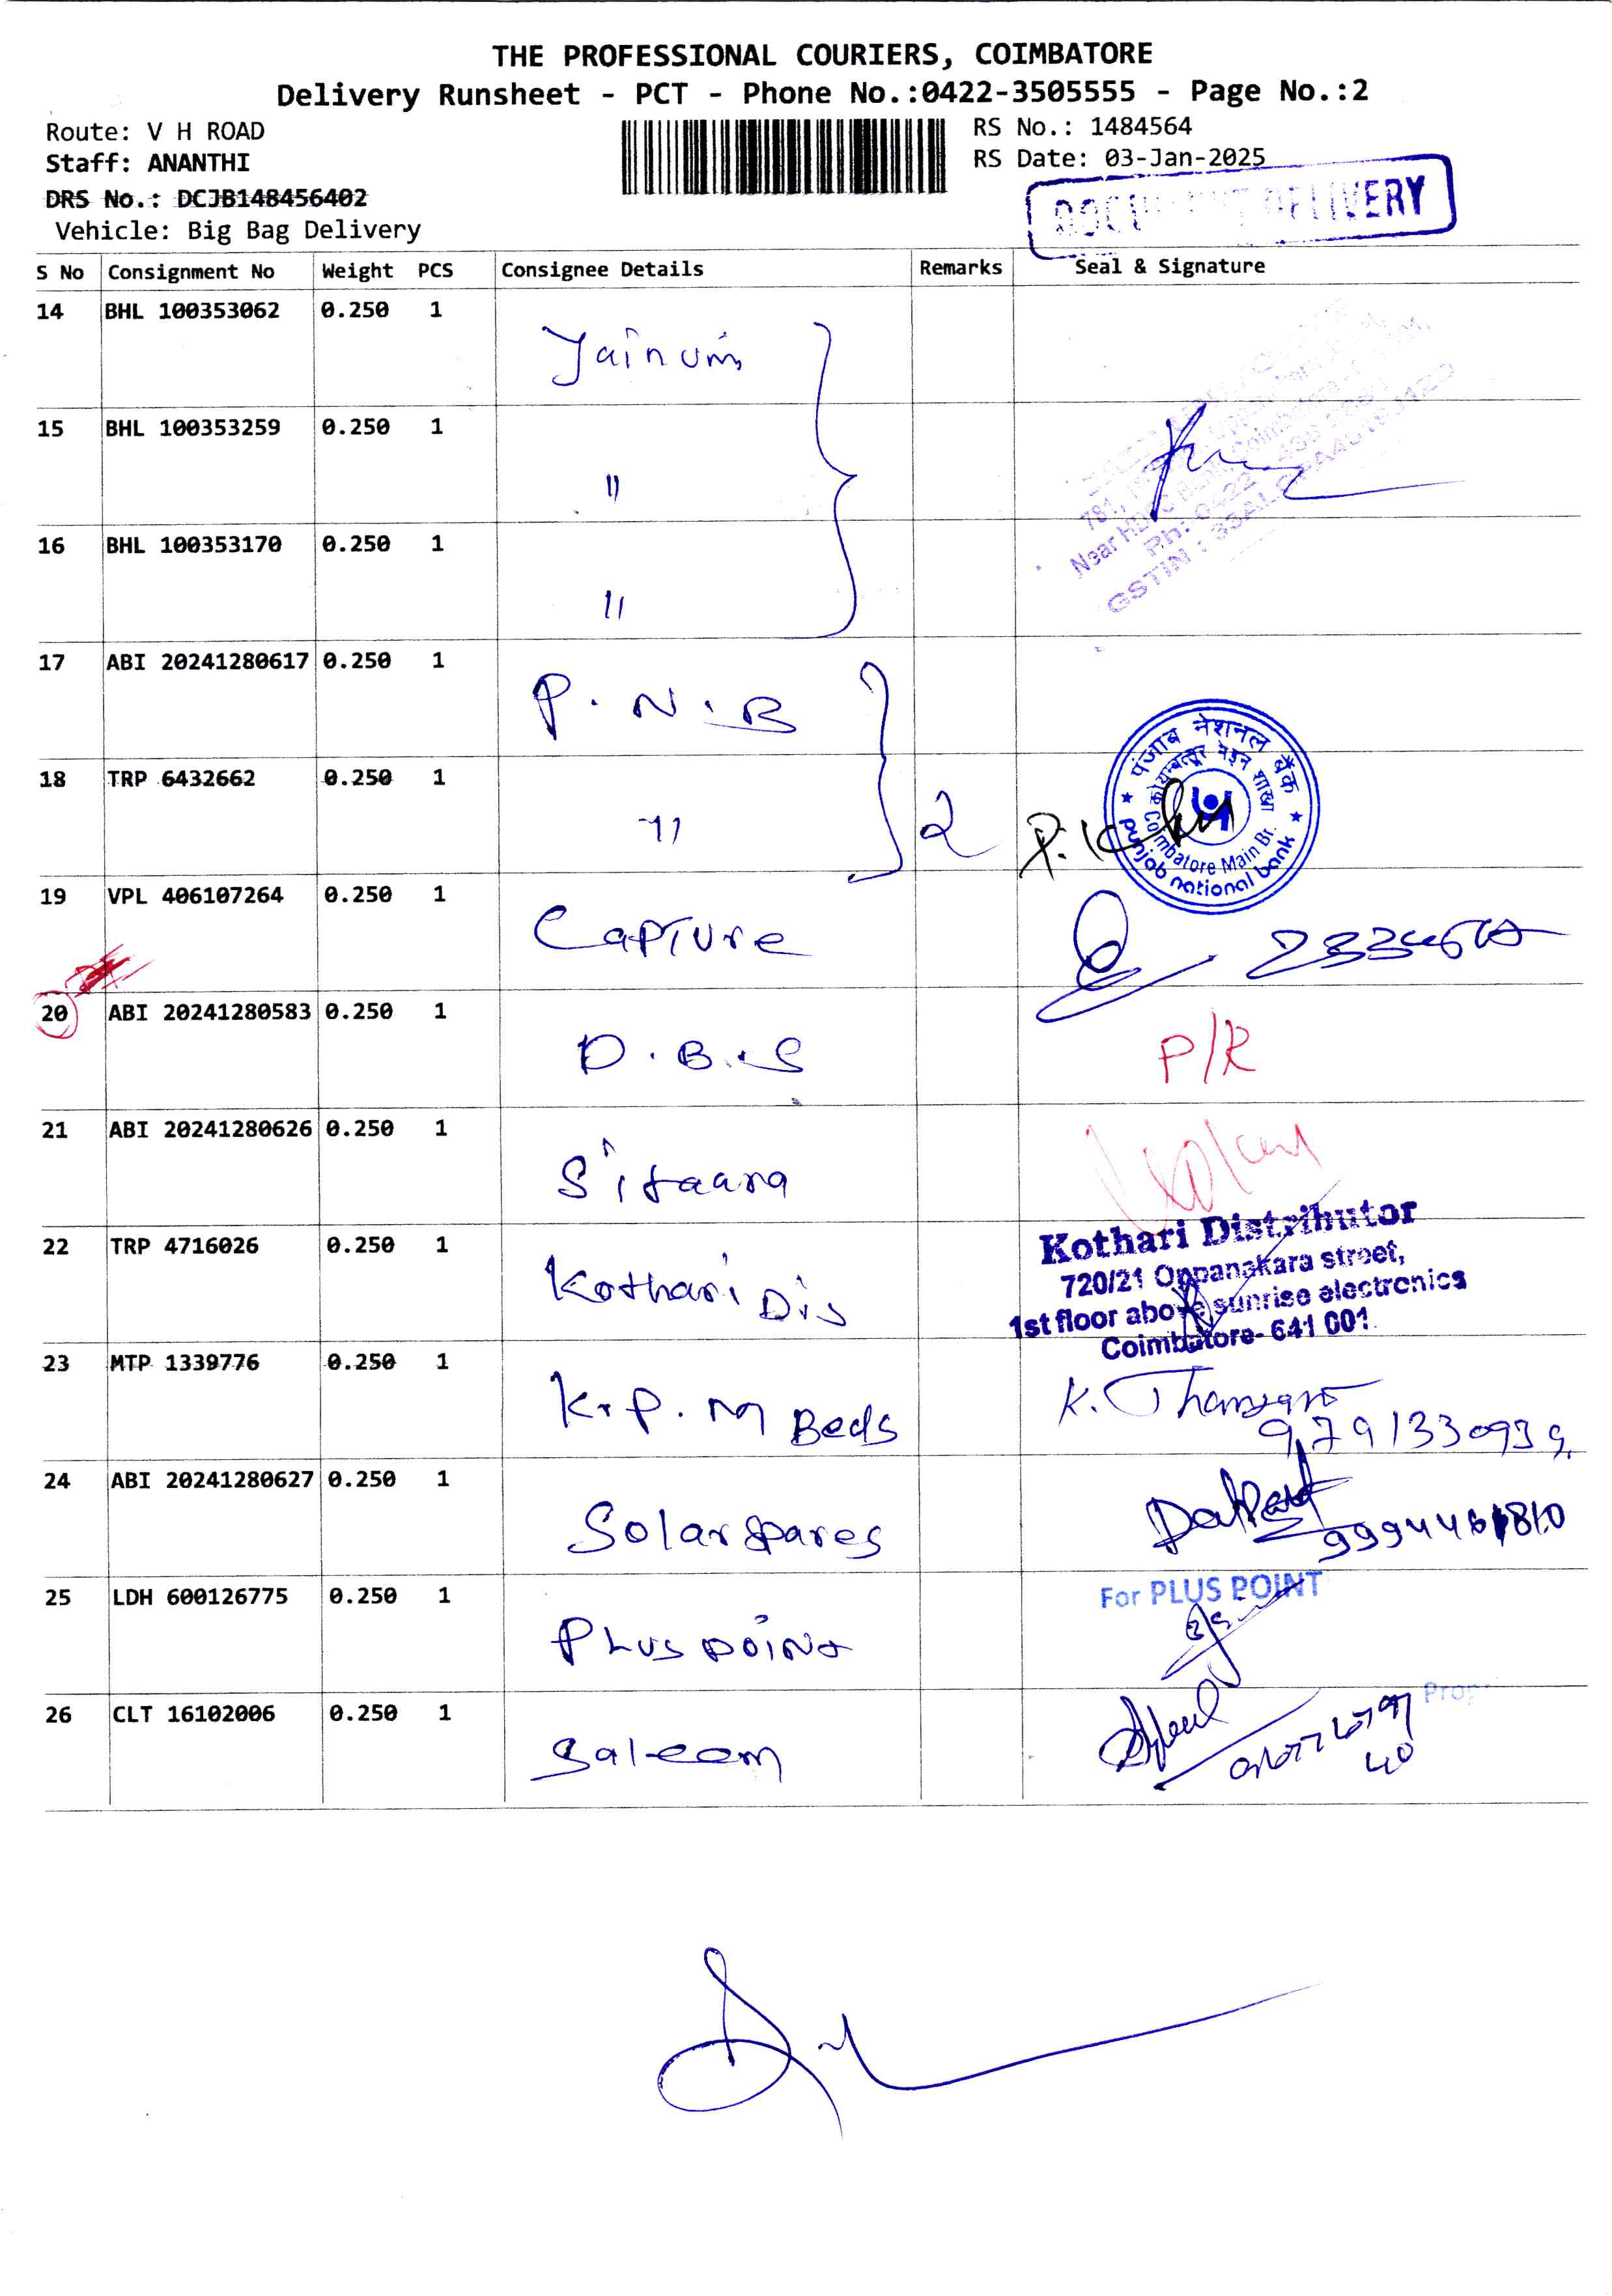 THE PROFESSIONAL COURIERS, COIMBATORE
Delivery Runsheet - PCT - Phone No.:0422-3505555 - Page No.:2
Route: V H ROAD
RS No.: 1484564
Staff: ANANTHI
RS Date: 03-Jan-2025
DRS No.: DCJB148456402
DOCUMENT DELIVERY
Vehicle: Big Bag Delivery
S No Consignment No Weight PCS Consignee Details Remarks Seal & Signature
14 BHL 100353062 0.250 1 Jainum
15 BHL 100353259 0.250 1 "
16 BHL 100353170 0.250 1 "
781,
Near HDFC Bank, Coimbatore-1
Ph: 0422
GSTIN :
17 ABI 20241280617 0.250 1 P.N.B
18 TRP 6432662 0.250 1 " 2
पंजाब नैशनल बैंक
कोयम्बत्तूर मेइन शाखा
Coimbatore Main Br.
punjab national bank
19 VPL 406107264 0.250 1 Capture
20 ABI 20241280583 0.250 1 D.B.S P/R
21 ABI 20241280626 0.250 1 Sitaara
22 TRP 4716026 0.250 1 Kothari Dis
Kothari Distributor
720/21 Oppanakara street,
1st floor above sunrise electronics
Coimbatore- 641 001.
23 MTP 1339776 0.250 1 K.P.M Beds
9791330939
24 ABI 20241280627 0.250 1 Solar Spares
25 LDH 600126775 0.250 1 Plus Point For PLUS POINT
Prop
26 CLT 16102006 0.250 1 Saleem